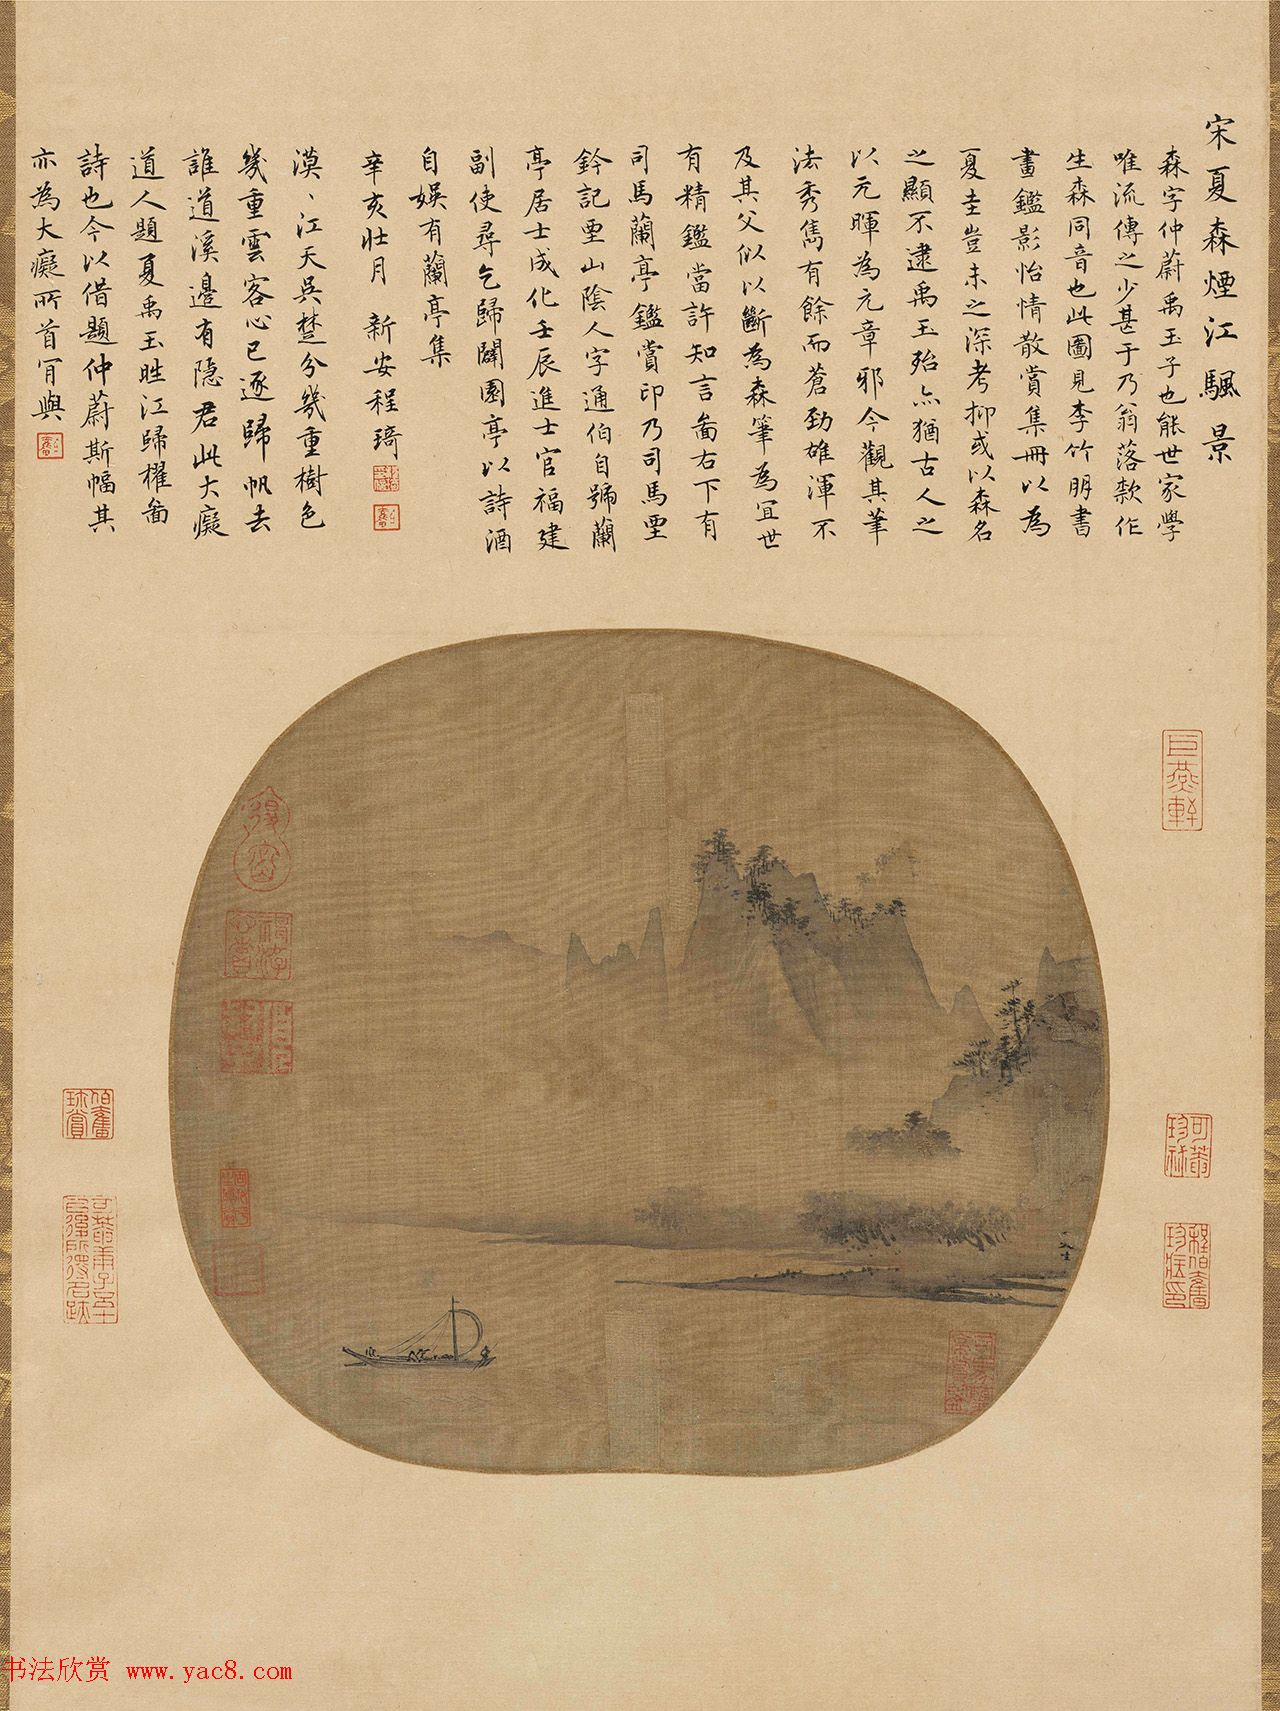 宋夏森煙江颿景
森字仲蔚禹玉子也能世家學
唯流傳之少甚于乃翁落款作
生森同音也此圖見李竹朋書
畫鑑影怡情散賞集冊以為
夏圭豈未之深考抑或以森名
之顯不逮禹玉殆亦猶古人之
以元暉為元章邪今觀其筆
法秀雋有餘而蒼勁雄渾不
及其父似以斷為森筆為宜世
有精鑑當許知言圖右下有
司馬蘭亭鑑賞印乃司馬垔
鈐記垔山陰人字通伯自號蘭
亭居士成化壬辰進士官福建
副使尋乞歸闢園亭以詩酒
自娛有蘭亭集
辛亥壯月 新安程琦
漠、江天吳楚分幾重樹色
幾重雲客心已逐歸帆去
誰道溪邊有隱君此大癡
道人題夏禹玉晴江歸櫂圖
詩也今以借題仲蔚斯幅其
亦為大癡所首肎與
巨燕軒
可菴珍祕
程伯奮珍藏印
伯奮珍賞
可菴庚子至辛丑後所得名跡
書法欣赏 www.yac8.com